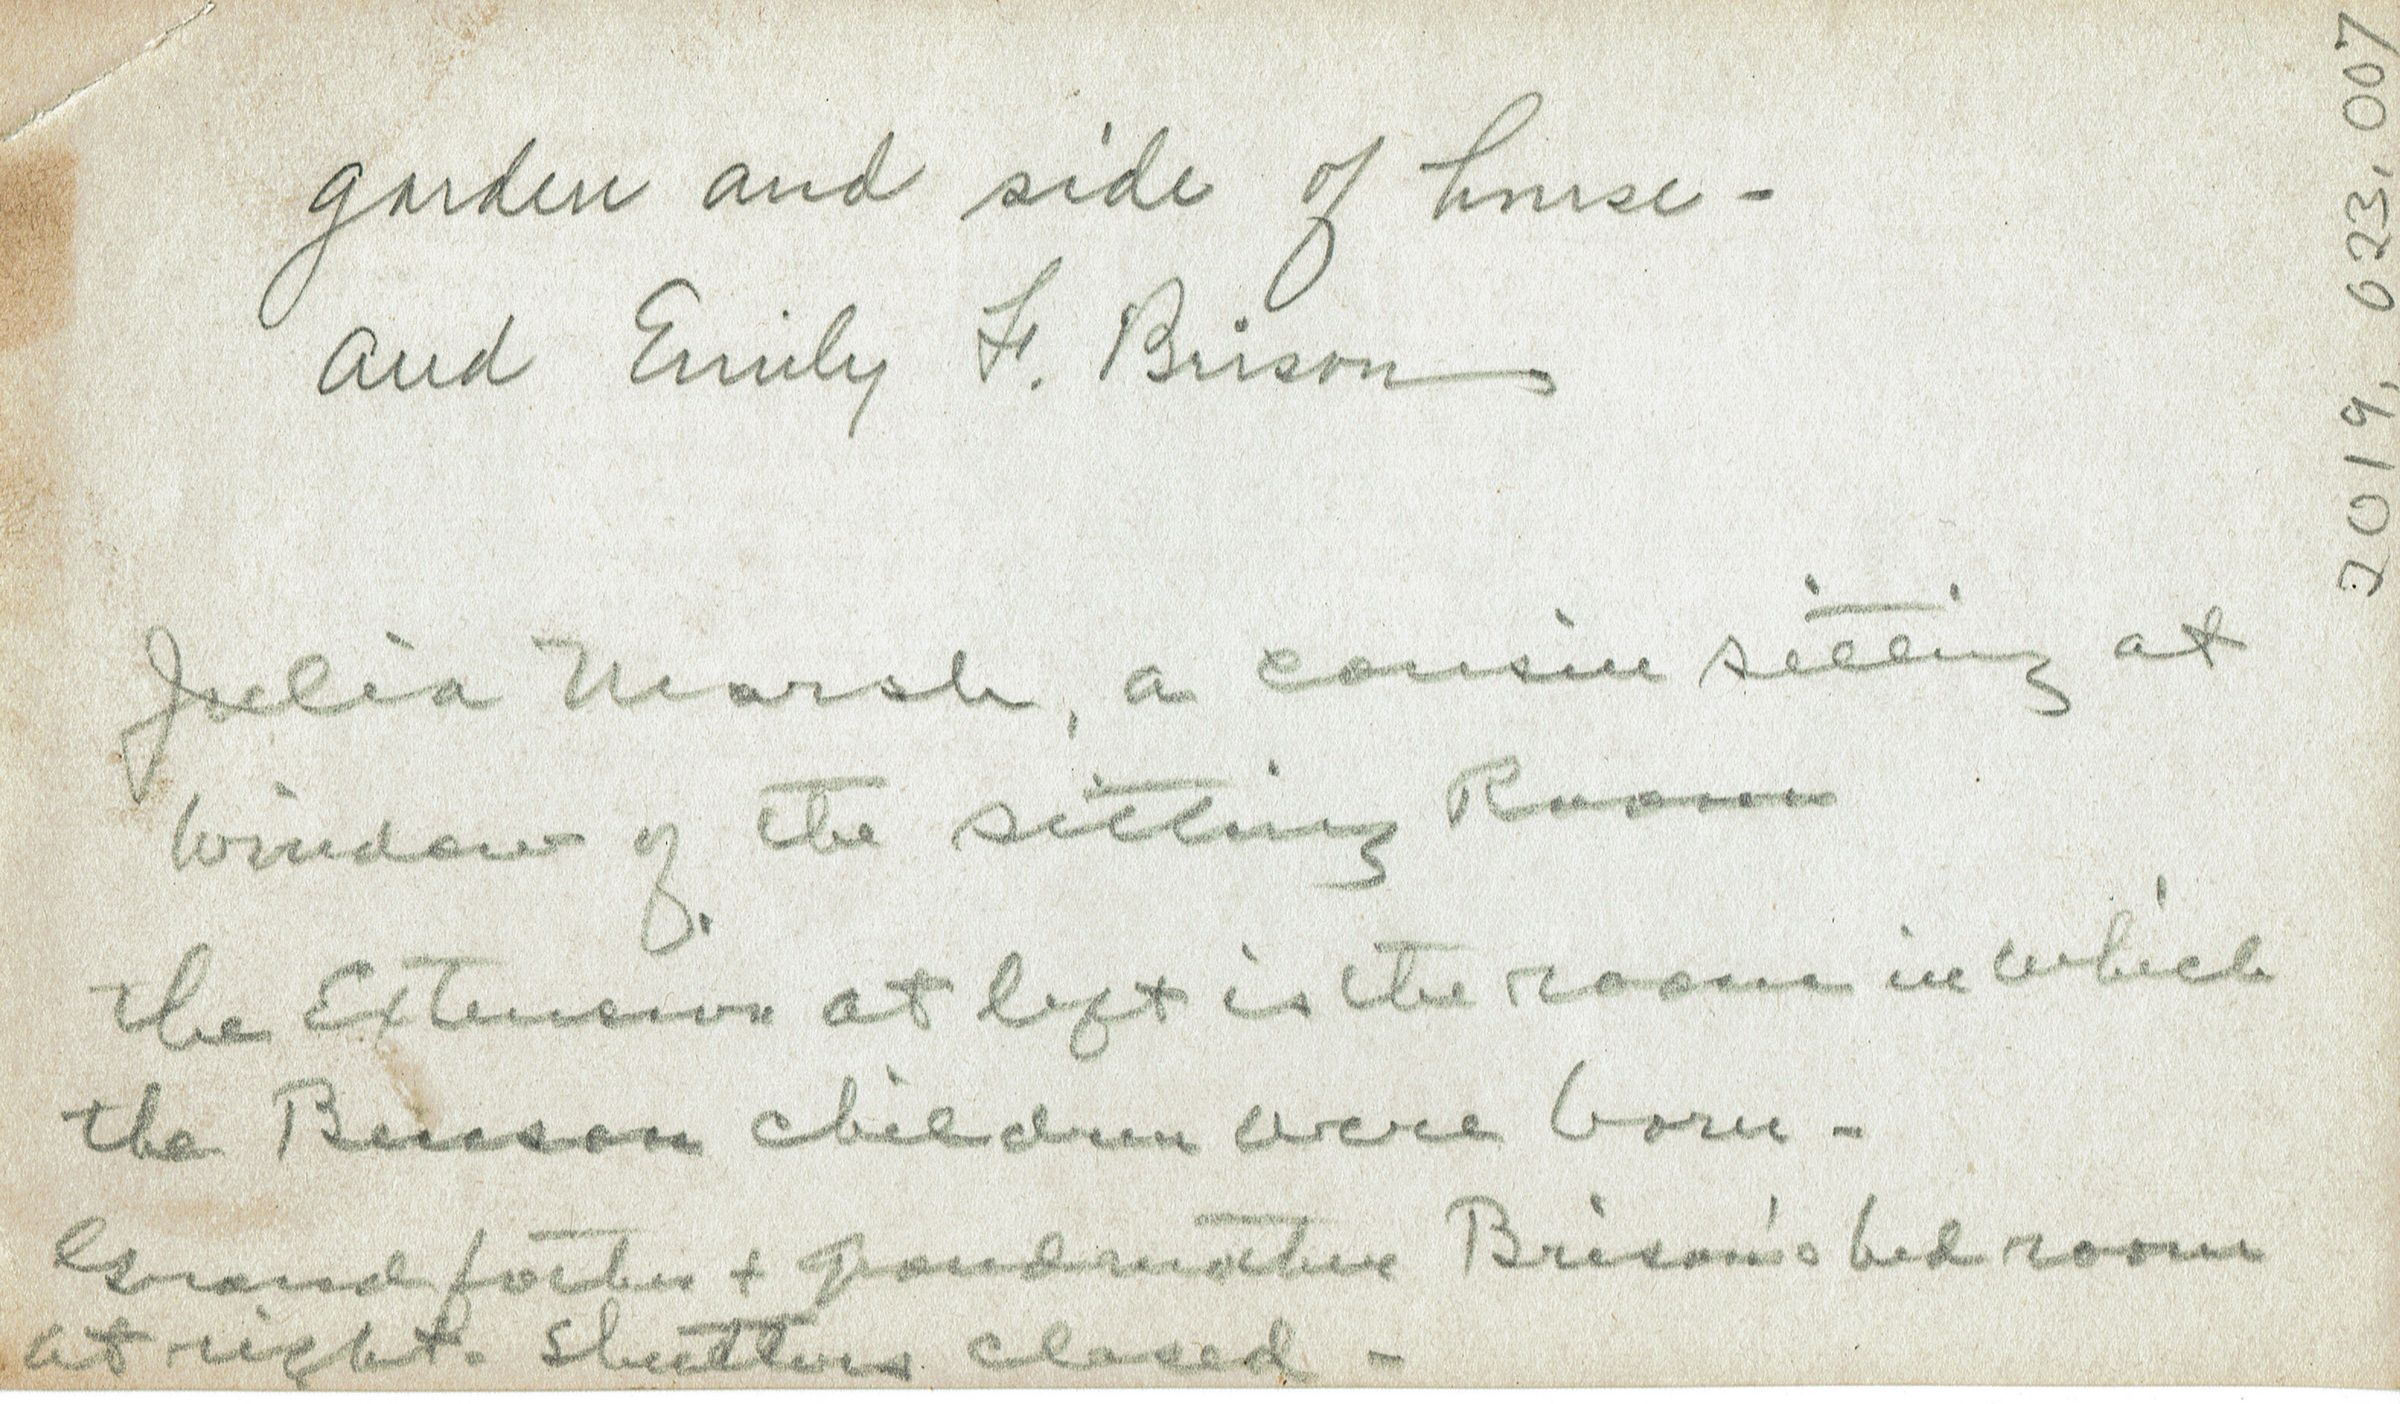 garden and side of house -
and Emily F. Brison
Julia Marsh, a cousin sitting at
window of the sitting Room
the Extension at left is the room in which
the Benson children were born -
Grandfather + grandmother Brison's bed room
at right. Shutters closed -
2019.023.007